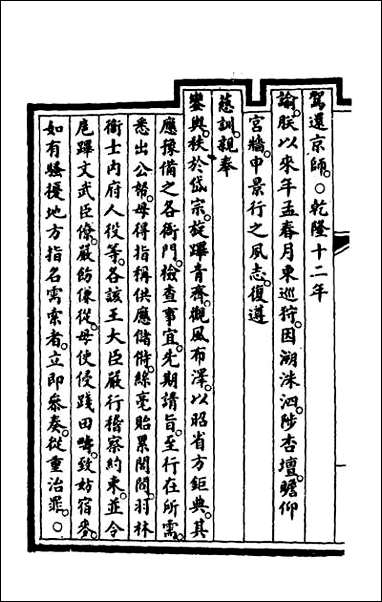 駕還京師。○乾隆十二年
諭。朕以來年孟春月東巡狩。因溯洙泗。陟杏壇。瞻仰
宮牆。申景行之夙志。復遵
慈訓。親奉
鑾輿。秩於岱宗。旋蹕青齊。觀風布澤。以昭省方鉅典。其
應豫備之各衙門。檢查事宜。先期請旨。至行在所需。
悉出公帑。毋得指稱供應儲偫。絲毫貽累閭閻。羽林
衛士。內府人役等。各該王大臣嚴行稽察約束。並令
扈蹕文武臣僚。嚴飭傔從。毋使侵踐田疇。致妨宿麥。
如有騷擾地方。指名需索者。立即參奏。從重治罪。○